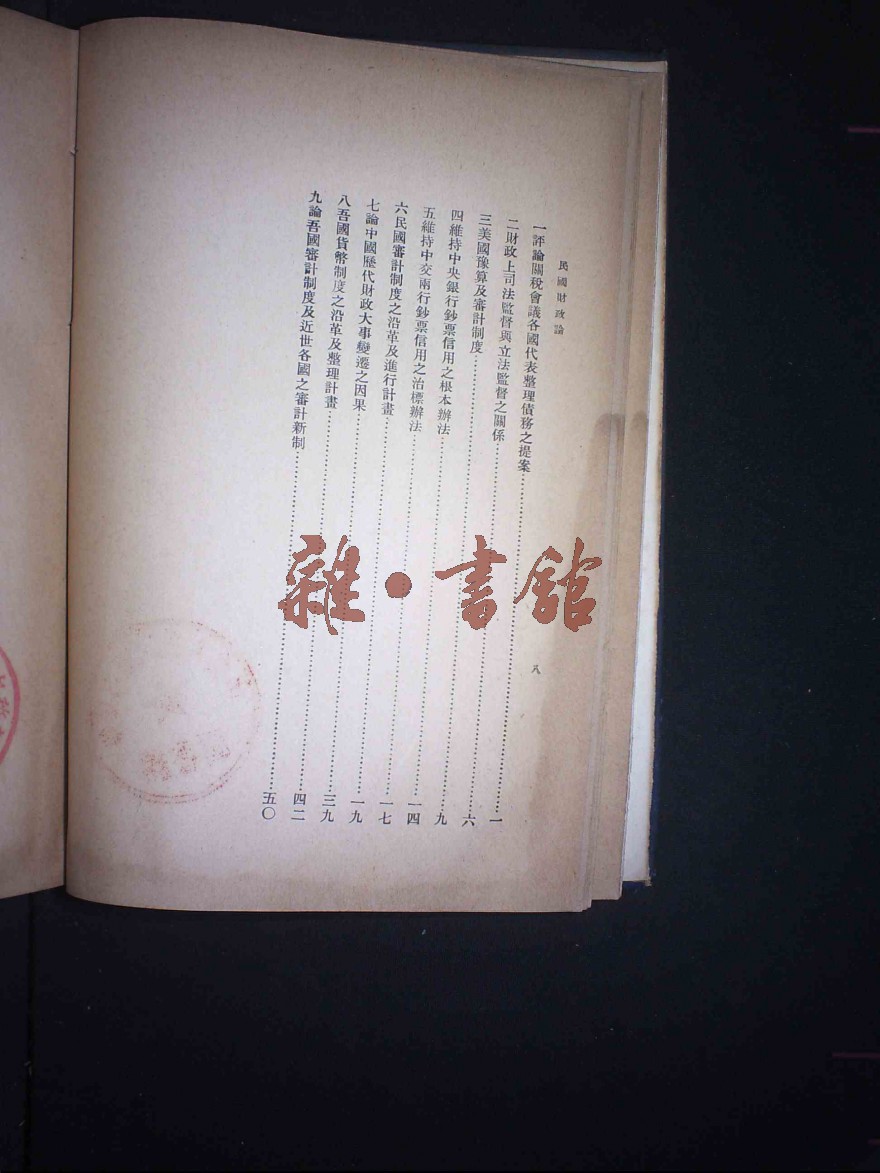 民國財政論
八
一評論關稅會議各國代表整理債務之提案……一
二財政上司法監督與立法監督之關係……六
三美國豫算及審計制度……九
四維持中央銀行鈔票信用之根本辦法……一四
五維持中交兩行鈔票信用之治標辦法……一七
六民國審計制度之沿革及進行計畫……一九
七論中國歷代財政大事變遷之因果……三九
八吾國貨幣制度之沿革及整理計畫……四二
九論吾國審計制度及近世各國之審計新制……五〇
雜·書館